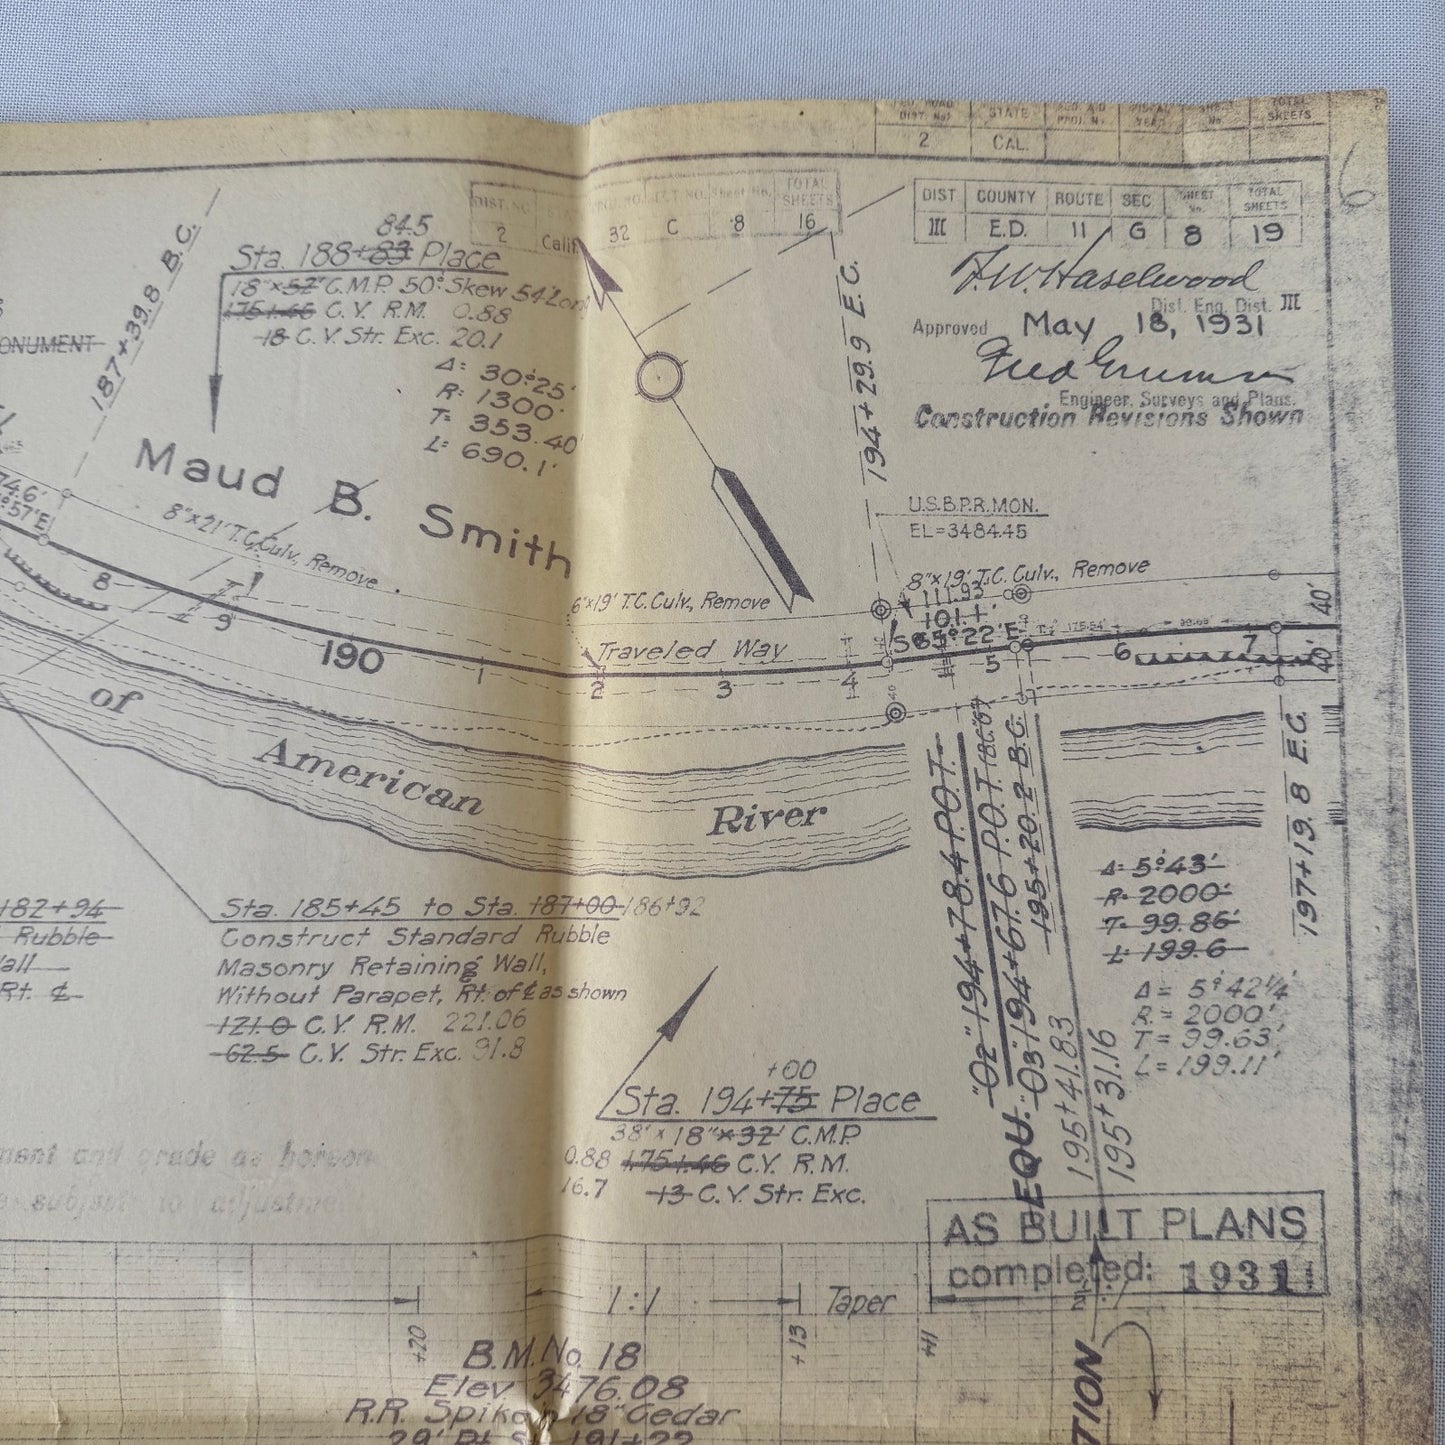 STATE
TOTAL SHEETS
2 CAL.
DIST. NO.
TOTAL SHEETS
2 Calif. 32 C 8 16
DIST COUNTY ROUTE SEC SHEET No. TOTAL SHEETS
III E.D. 11 G 8 19
F.W. Haselwood
Dist. Eng. Dist. III
Approved May 18, 1931
Engineer, Surveys and Plans.
Construction Revisions Shown
6
187+39.8 B.C.
84.5
Sta. 188+83 Place
18"x52' C.M.P. 50° Skew 54' Long
175+.46 C.Y. R.M. 0.88
18 C.Y. Str. Exc. 20.1
Δ= 30°25'
R= 1300'
T= 353.40'
L= 690.1'
ONUMENT
74.6'
°57'E
Maud B. Smith
8"x21' T.C. Culv., Remove
6"x19' T.C. Culv., Remove
Traveled Way
194+29.9 E.C.
U.S.B.P.R. MON.
EL=3484.45
8"x19' T.C. Culv., Remove
111.93
101.1'
S65°22'E
175.54'
99.63'
40'
40'
40
8 9 190 1 2 3 4 5 6 7
of American River
194+78.4 P.O.T.
"O2" 194+67.6 P.O.T.
"O3" 195+20.2 B.C.
EQU.
195+41.83
195+31.16
197+19.8 E.C.
Δ= 5°43'
R= 2000'
T= 99.86'
L= 199.6
Δ= 5°42¼'
R= 2000'
T= 99.63'
L= 199.11'
+82+94
Rubble
all
Rt. ℄
Sta. 185+45 to Sta. 187+00 186+92
Construct Standard Rubble
Masonry Retaining Wall,
Without Parapet, Rt. of ℄ as shown
121.0 C.Y. R.M. 221.06
62.5 C.Y. Str. Exc. 91.8
+00
Sta. 194+75 Place
38' x 18"x32' C.M.P.
0.88 175+.46 C.Y. R.M.
16.7 13 C.Y. Str. Exc.
ment and grade as hereon
subject to adjustm
AS BUILT PLANS
completed: 1931
1:1 Taper
+20
+13
+41
B.M. No. 18
Elev 3476.08
R.R. Spike in 18" Cedar
29' Rt. St. 191+22
TION